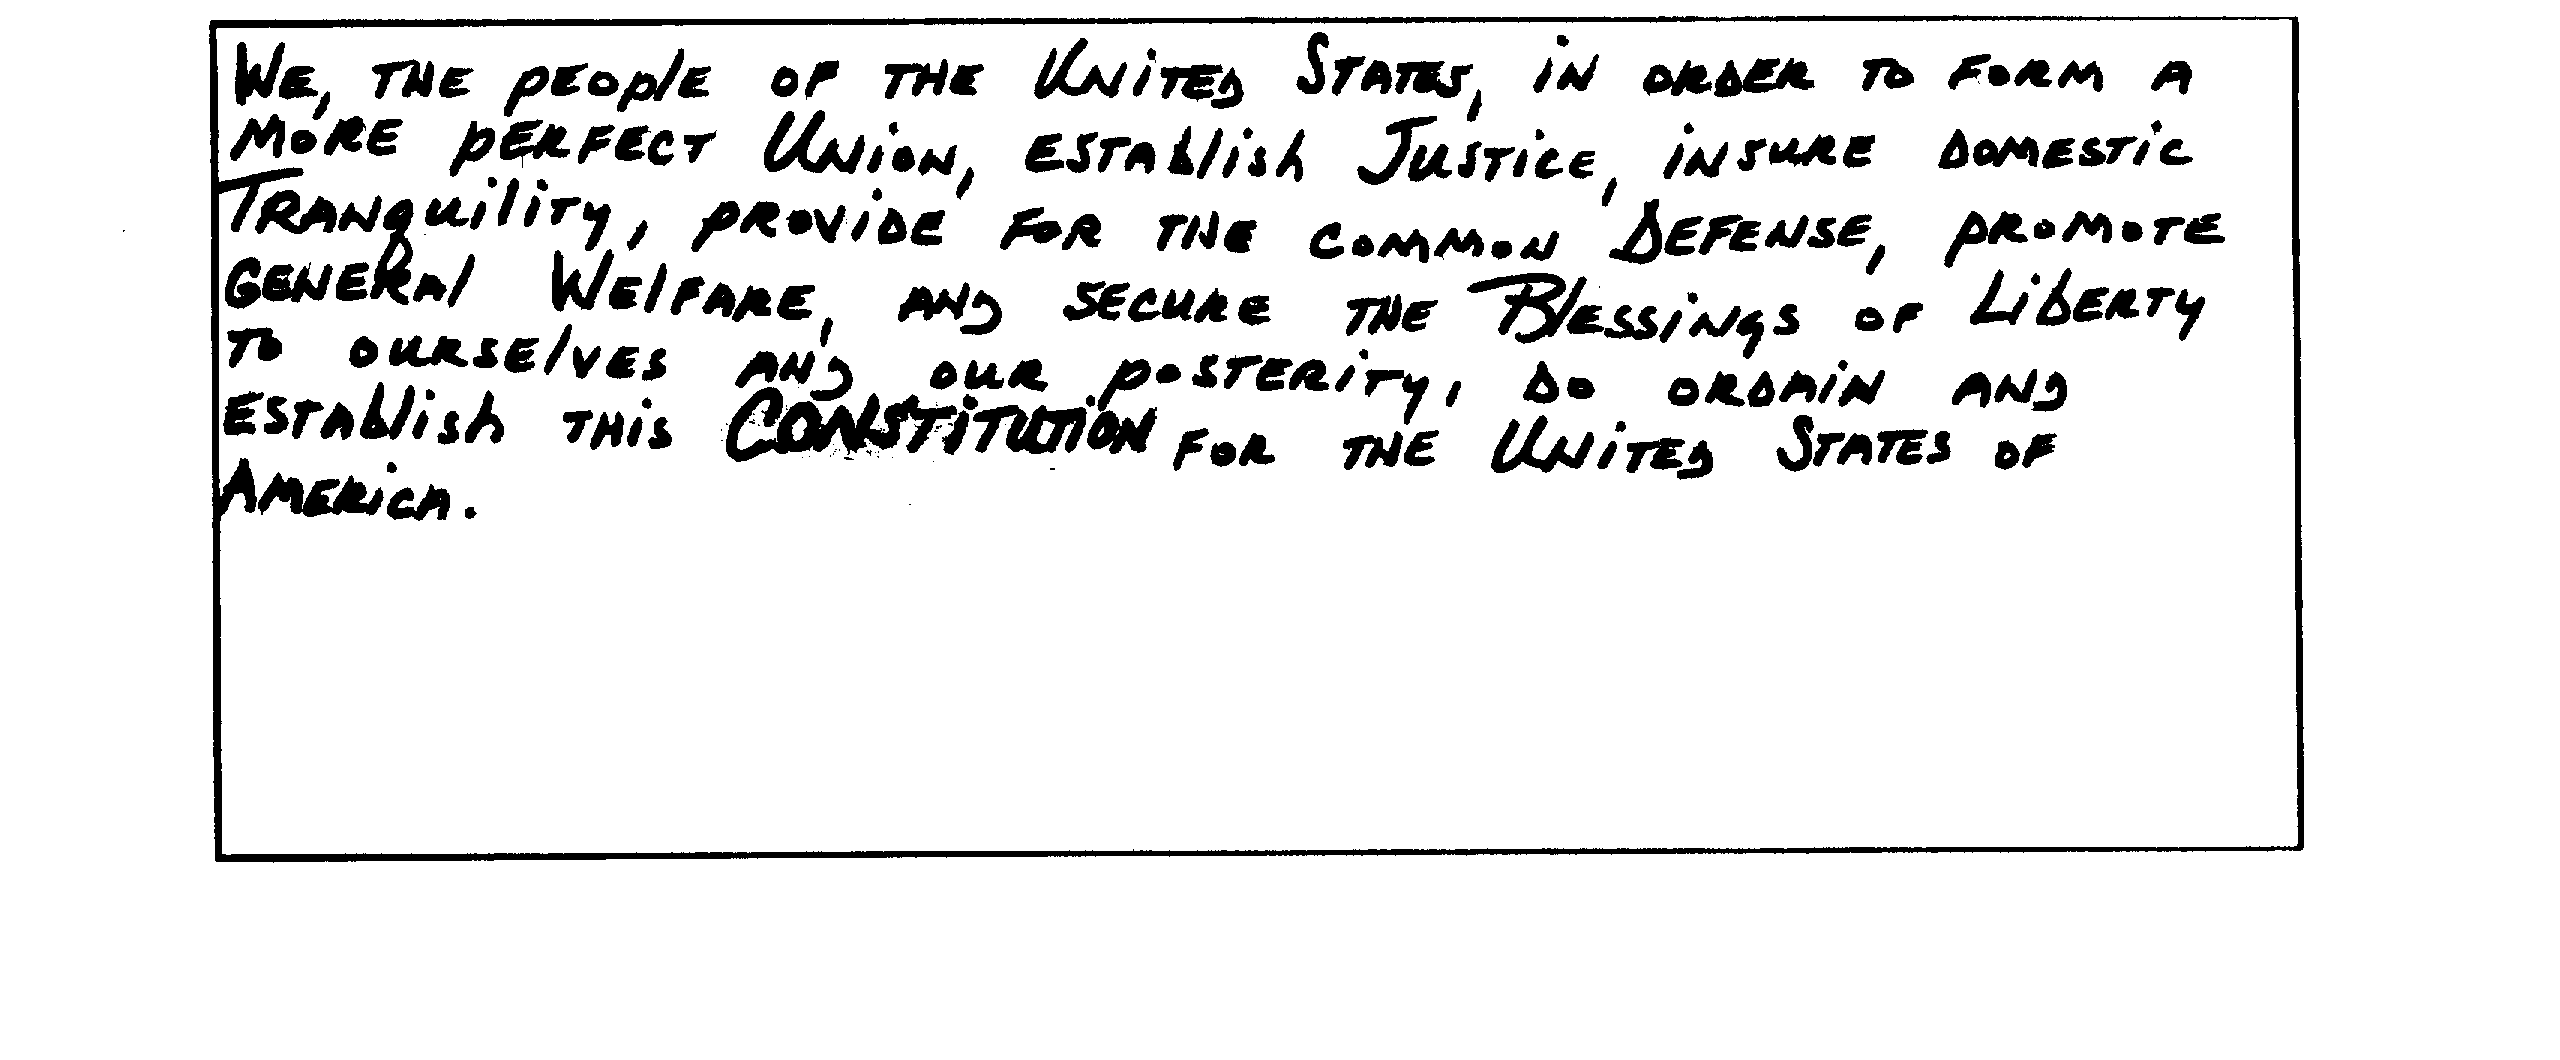 We, the people of the United States, in order to form a
more perfect Union, establish Justice, insure domestic
Tranquility, provide for the common Defense, promote
general Welfare, and secure the Blessings of Liberty
to ourselves and our posterity, do ordain and
establish this CONSTITUTION for the United States of
America.